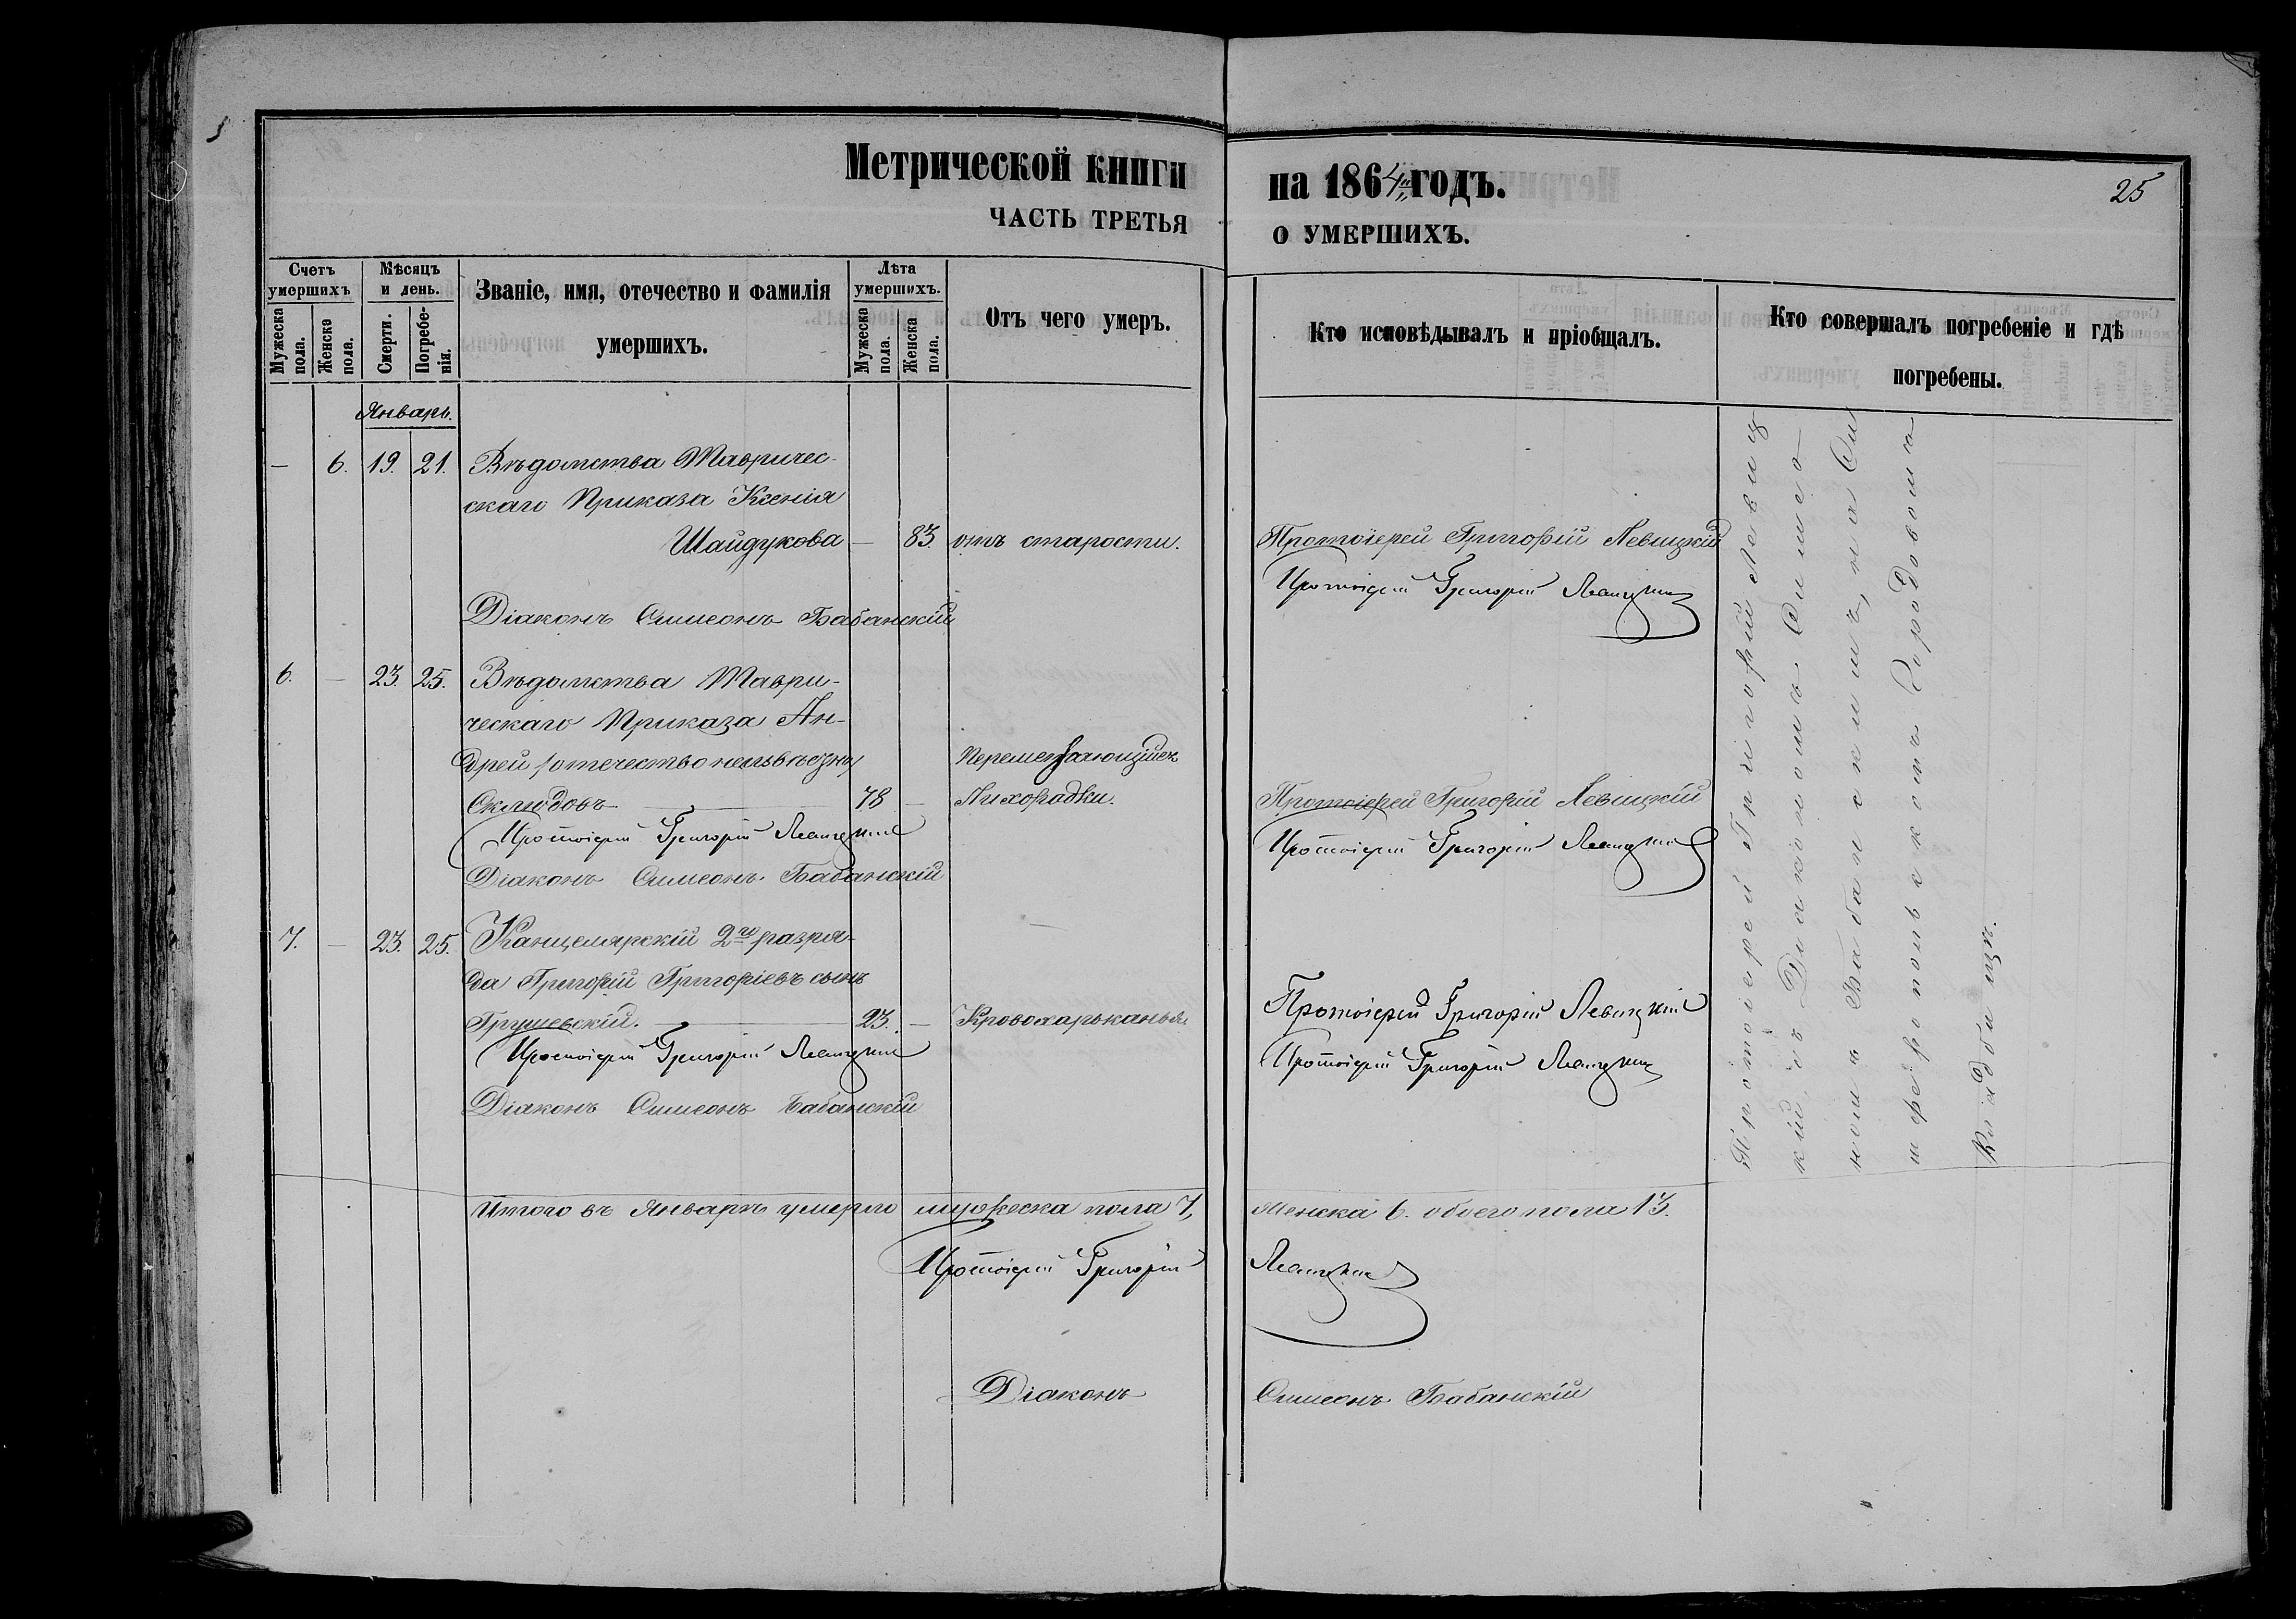 Метрической книги на 1864 годъ.
25
ЧАСТЬ ТРЕТЬЯ О УМЕРШИХЪ.
Счетъ умершихъ
Мужеска пола.
Женска пола.
Мѣсяцъ и день.
Смерти.
Погребенія.
Званіе, имя, отечество и фамилія
умершихъ.
Лѣта умершихъ.
Мужеска пола.
Женска пола.
Отъ чего умеръ.
Кто исповѣдывалъ и пріобщалъ.
Кто совершалъ погребеніе и гдѣ
погребены.
Январь.
— 6. 19. 21. Вѣдомства Тавричес-
скаго Приказа Ксенія
Шайдукова — 83. отъ старости. Протоіерей Григорій Левицкій
Протоіерей Григорій Левицкій
Діаконъ Симеонъ Бабанскій
6. — 23. 25. Вѣдомства Таври-
ческаго Приказа Ан-
дрей /отечество
Перемежающійся
Склюдовъ — 78 — Лихорадки. Протоіерей Григорій Левицкій
Протоіерей Григорій Левицкій Протоіерей Григорій Левицкій
Діаконъ Симеонъ Бабанскій
7. — 23. 25. Канцелярскій 2го разря-
да Григорій Григоріевъ сынъ
Грушевскій. — 23. — Кровохарканья Протоіерей Григорій Левицкій
Протоіерей Григорій Левицкій Протоіерей Григорій Левицкій
Діаконъ Симеонъ Бабанскій
Протоіерей Григорій Левиц
кій, съ Діакономъ Симео-
номъ Бабанскимъ, на Сим
мферопольскомъ Городовомъ
Кладбищѣ.
Итого въ Январѣ умерло мужеска пола 7, женска 6. обоего пола 13.
Протоіерей Григорій Левицкій
Діаконъ Симеонъ Бабанскій